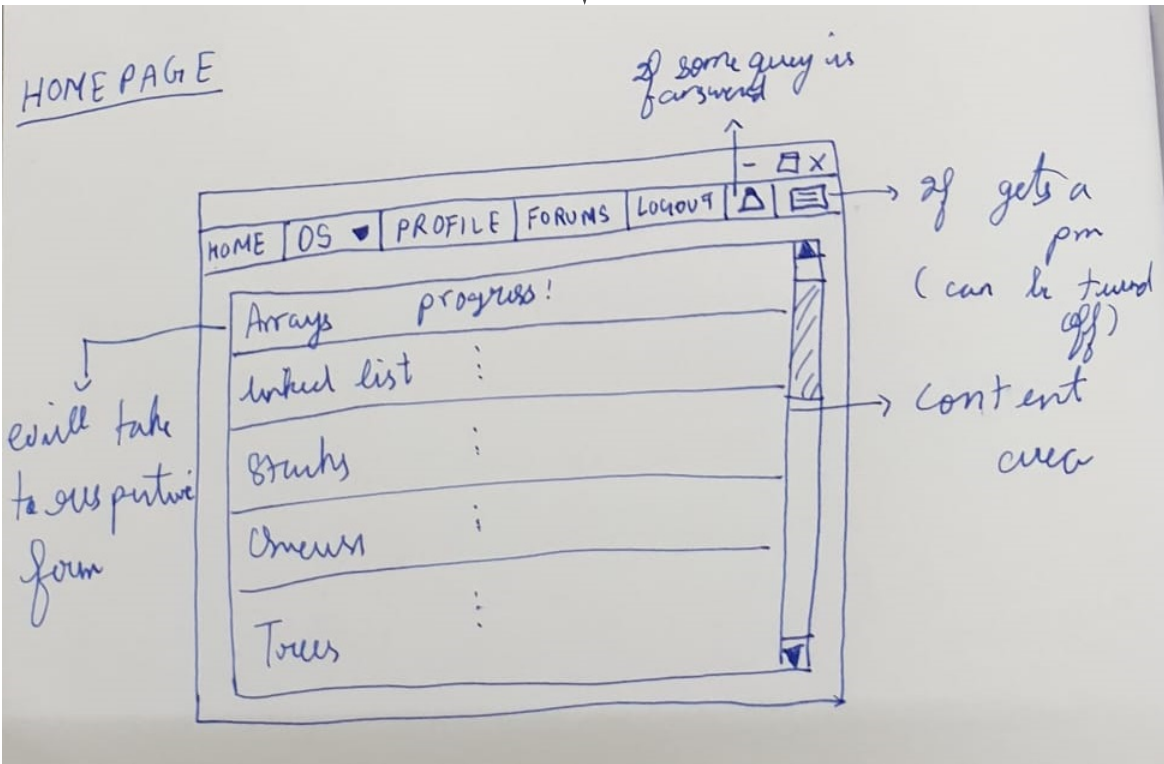 HOMEPAGE
If some query is
answered
- X
HOME OS PROFILE FORUMS LOGOUT
If gets a
pm
(can be turned
off)
Arrays progress!
linked list
Stacks
Trees
will take
to respective
form
content
area